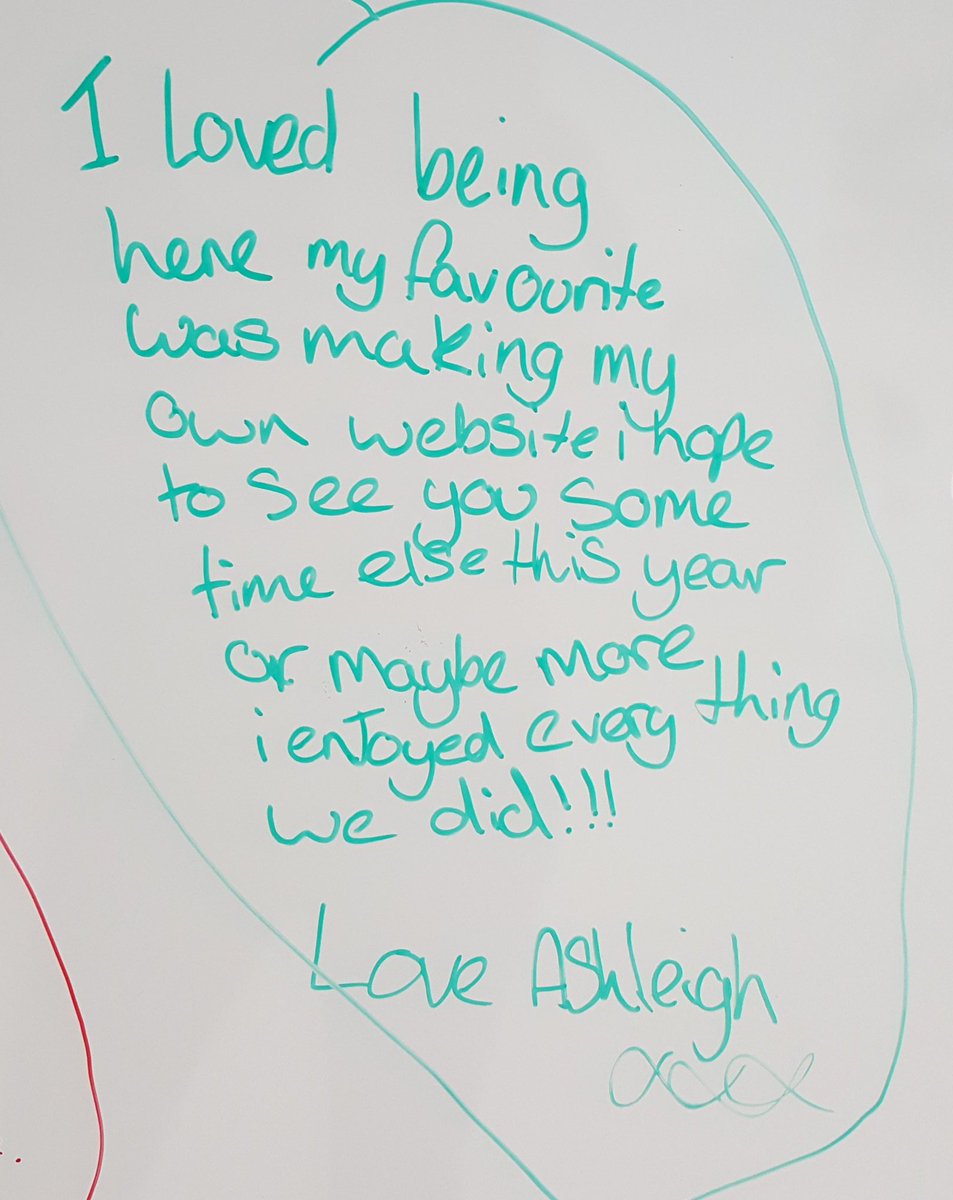 I loved being
here my favourite
was making my
own website i hope
to see you some
time else this year
or maybe more
i enJoyed every thing
we did!!!
Love Ashleigh
xxxx